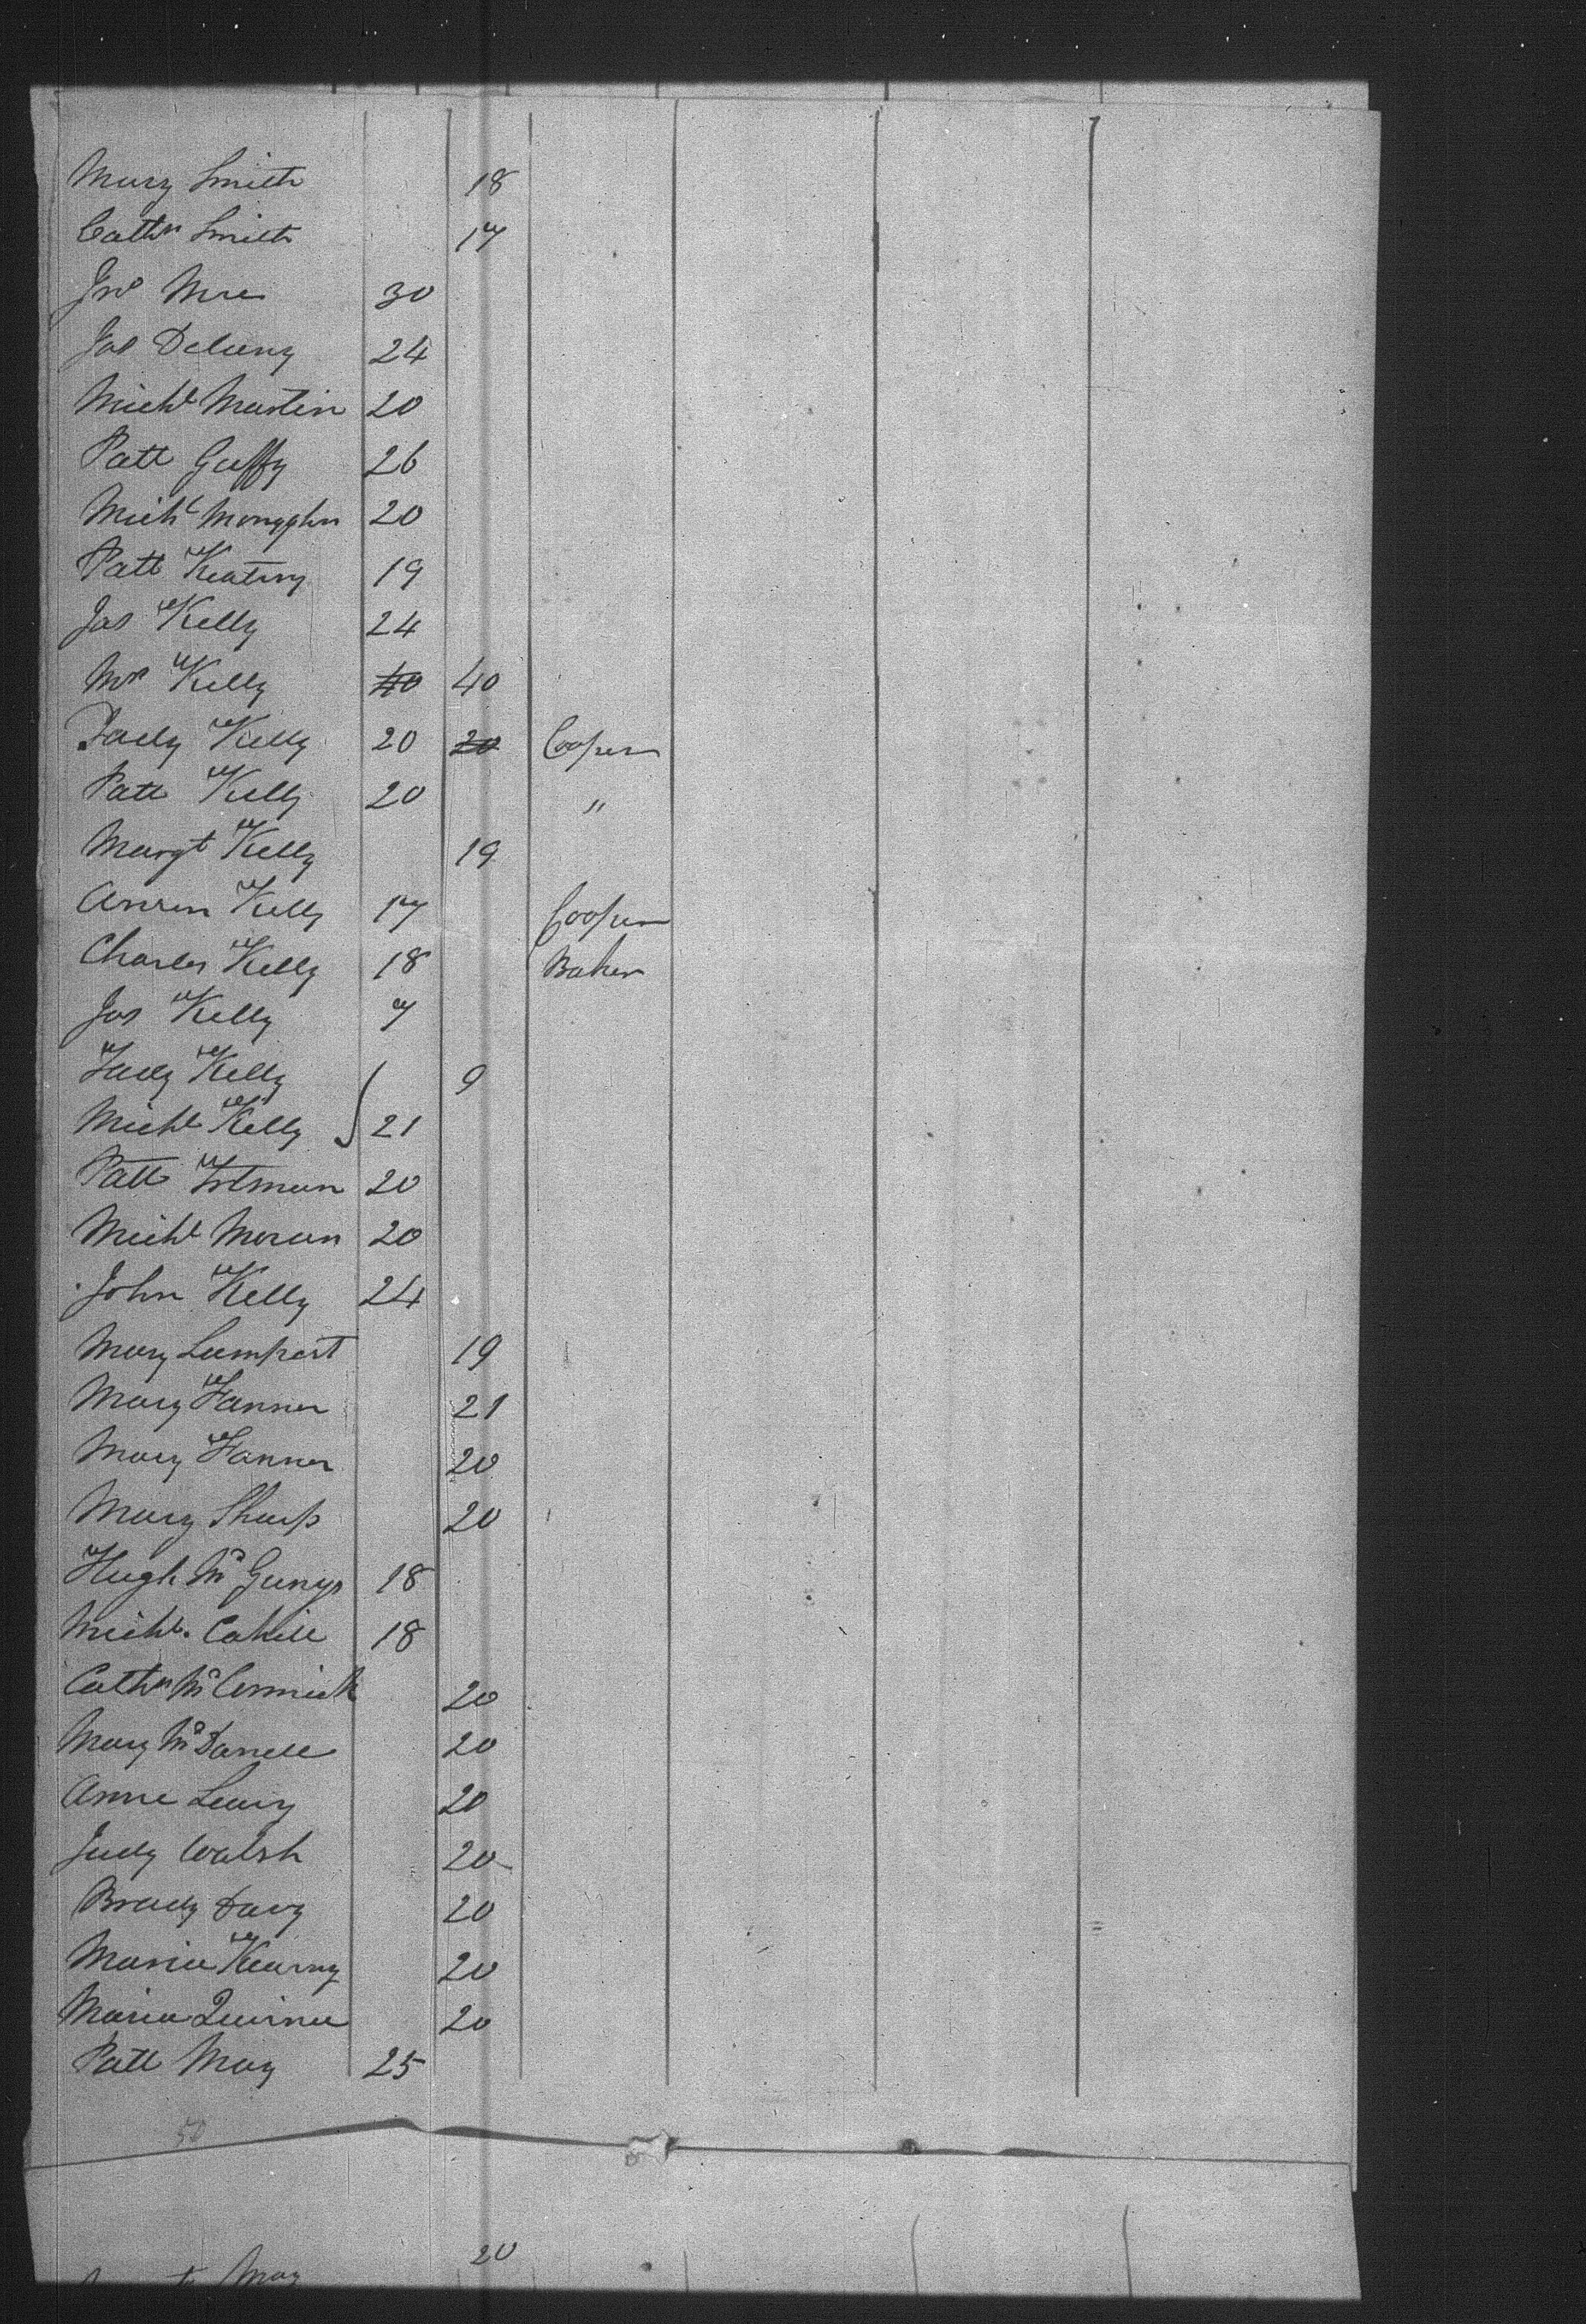 Mary Smith 18
Cathn Smith 17
Jno Mre 30
Jas Deluny 24
Michl Martin 20
Patt Guffy 26
Michl Mongghn 20
Patt Keating 19
Jas Kelly 24
Mrs Kelly 40 40
Pady Kelly 20 20 Cooper
Patt Kelly 20 "
Margt Kelly 19
Kelly 17 Cooper
Charles Kelly 18 Baker
Jas Kelly 7
Judy Kelly 9
Michl Kelly 21
Patt 20
Michl Moran 20
John Kelly 24
Mary Lampart 19
Mary Fanner 21
Mary Fanner 20
Mary Sharp 20
Hugh Mc 18
Michl. Cahill 18
Cathn McCormick 20
Mary McDanell 20
Anne Leary 20
Judy Walsh 20
Bready Davy 20
Maria Kearny 20
Maria Quinn 20
Patt May 25
May 20